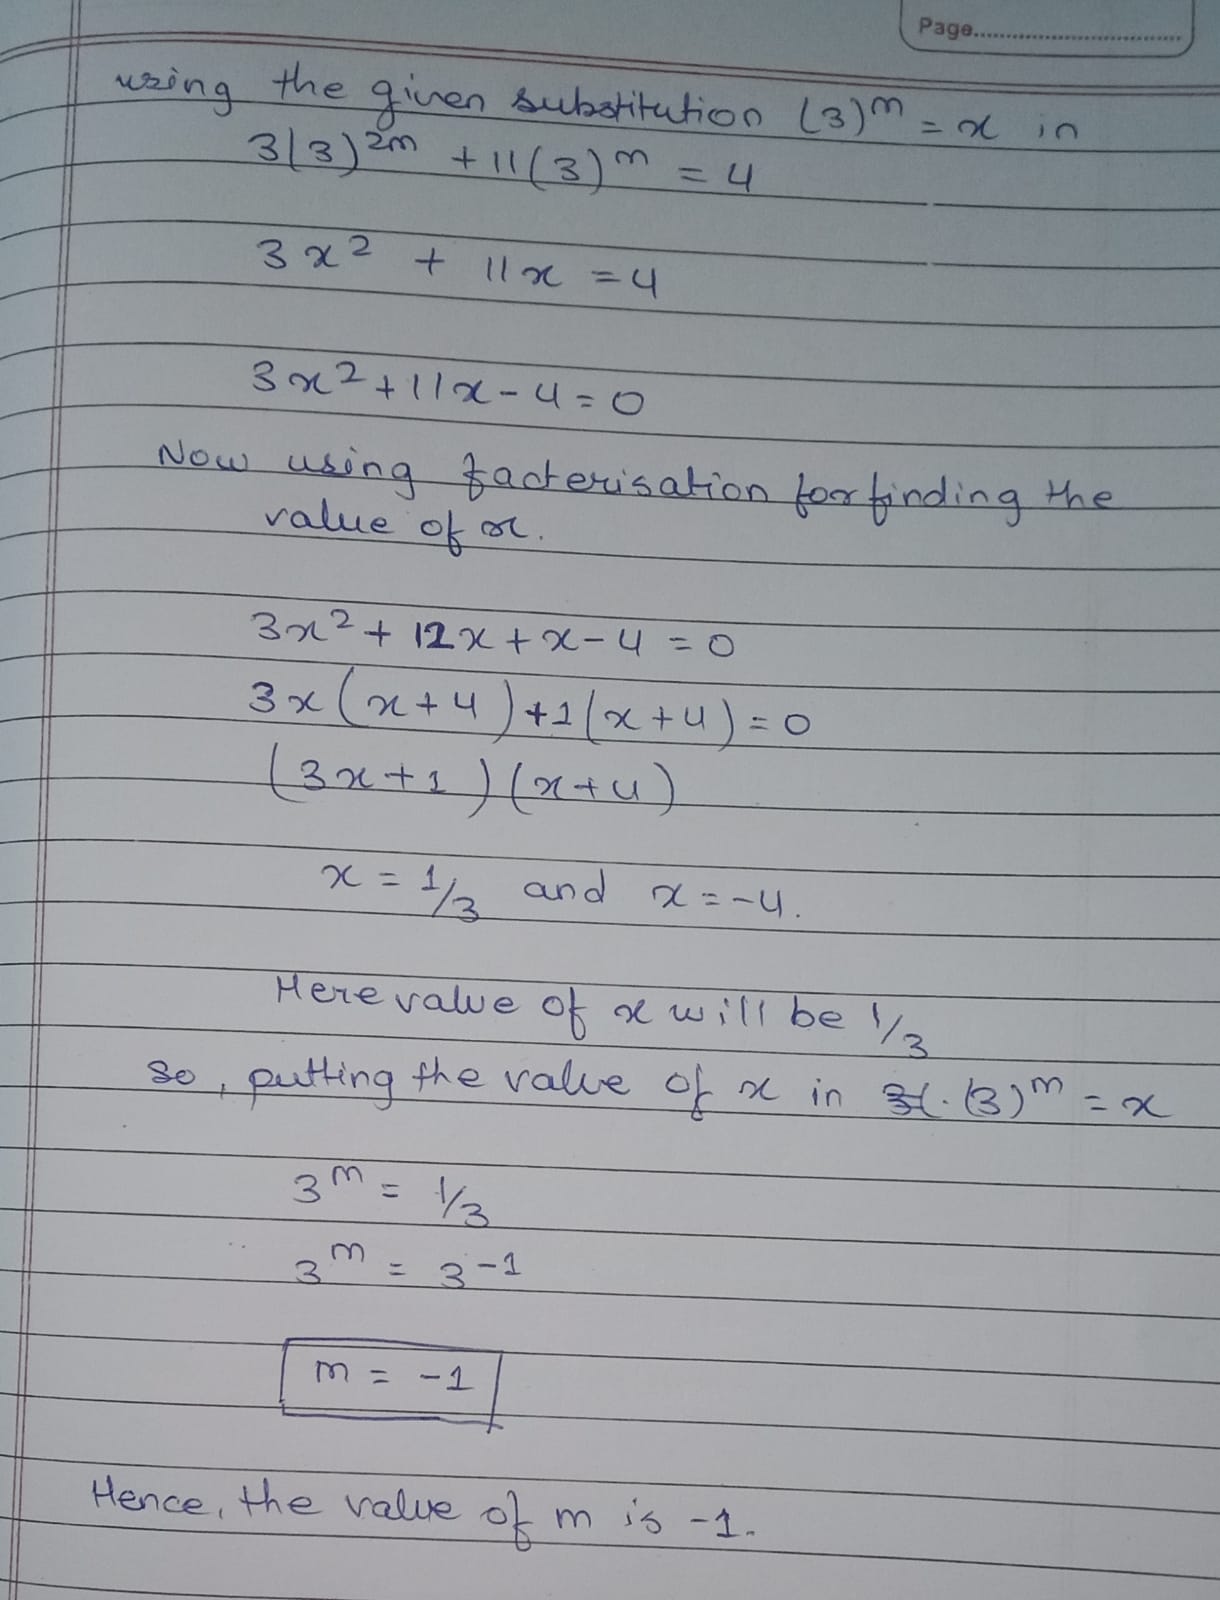 Page..............................
using the given substitution (3)^m = x in
3(3)^2m + 11(3)^m = 4
3x² + 11x = 4
3x² + 11x - 4 = 0
Now using facterisation for finding the
value of x.
3x² + 12x + x - 4 = 0
3x(x+4) + 1(x+4) = 0
(3x+1)(x+4)
x = 1/3 and x = -4.
Here value of x will be 1/3
so, putting the value of x in (3)^m = x
3^m = 1/3
3^m = 3^-1
m = -1
Hence, the value of m is -1.